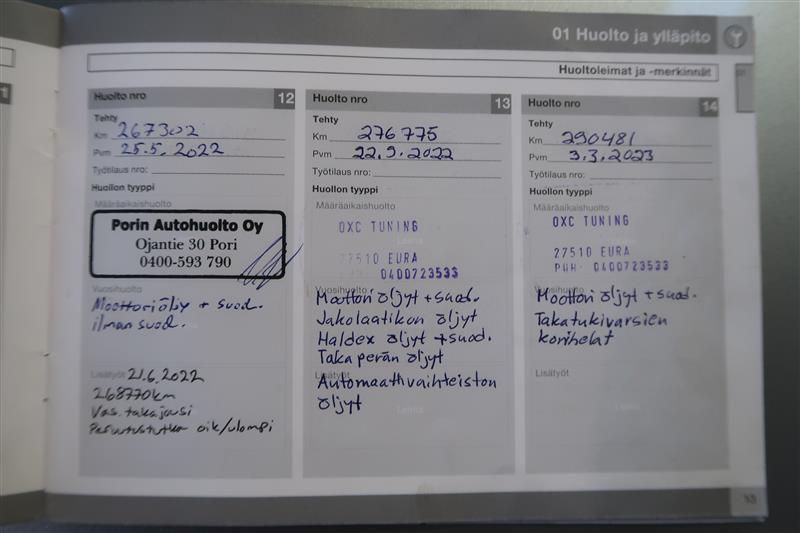 01 Huolto ja ylläpito
Huoltoleimat ja -merkinnät
Huolto nro 12
Tehty
Km 267302
Pvm 25.5. 2022
Työtilaus nro:
Huollon tyyppi
Määräaikaishuolto
Porin Autohuolto Oy
Ojantie 30 Pori
0400-593 790
Vuosihuolto
Moottoriöljy + suod.
ilman suod.
Lisätyöt 21.6.2022
268770km
Vas. takajousi
Peruutustutka oik/ulompi
Huolto nro 13
Tehty
Km 276 775
Pvm 22.9.2022
Työtilaus nro:
Huollon tyyppi
Määräaikaishuolto
OXC TUNING
Leima
27510 EURA
0400723533
Vuosihuolto
Moottori öljyt + suod.
Jakolaatikon öljyt
Haldex öljyt + suod.
Taka perän öljyt
Lisätyöt
Automaattivaihteiston
öljyt
Leima
Huolto nro 14
Tehty
Km 290481
Pvm 3.3.2023
Työtilaus nro:
Huollon tyyppi
Määräaikaishuolto
OXC TUNING
Leima
27510 EURA
PUH: 0400723533
Vuosihuolto
Moottori öljyt + suod.
Takatukivarsien
korihelat
Lisätyöt